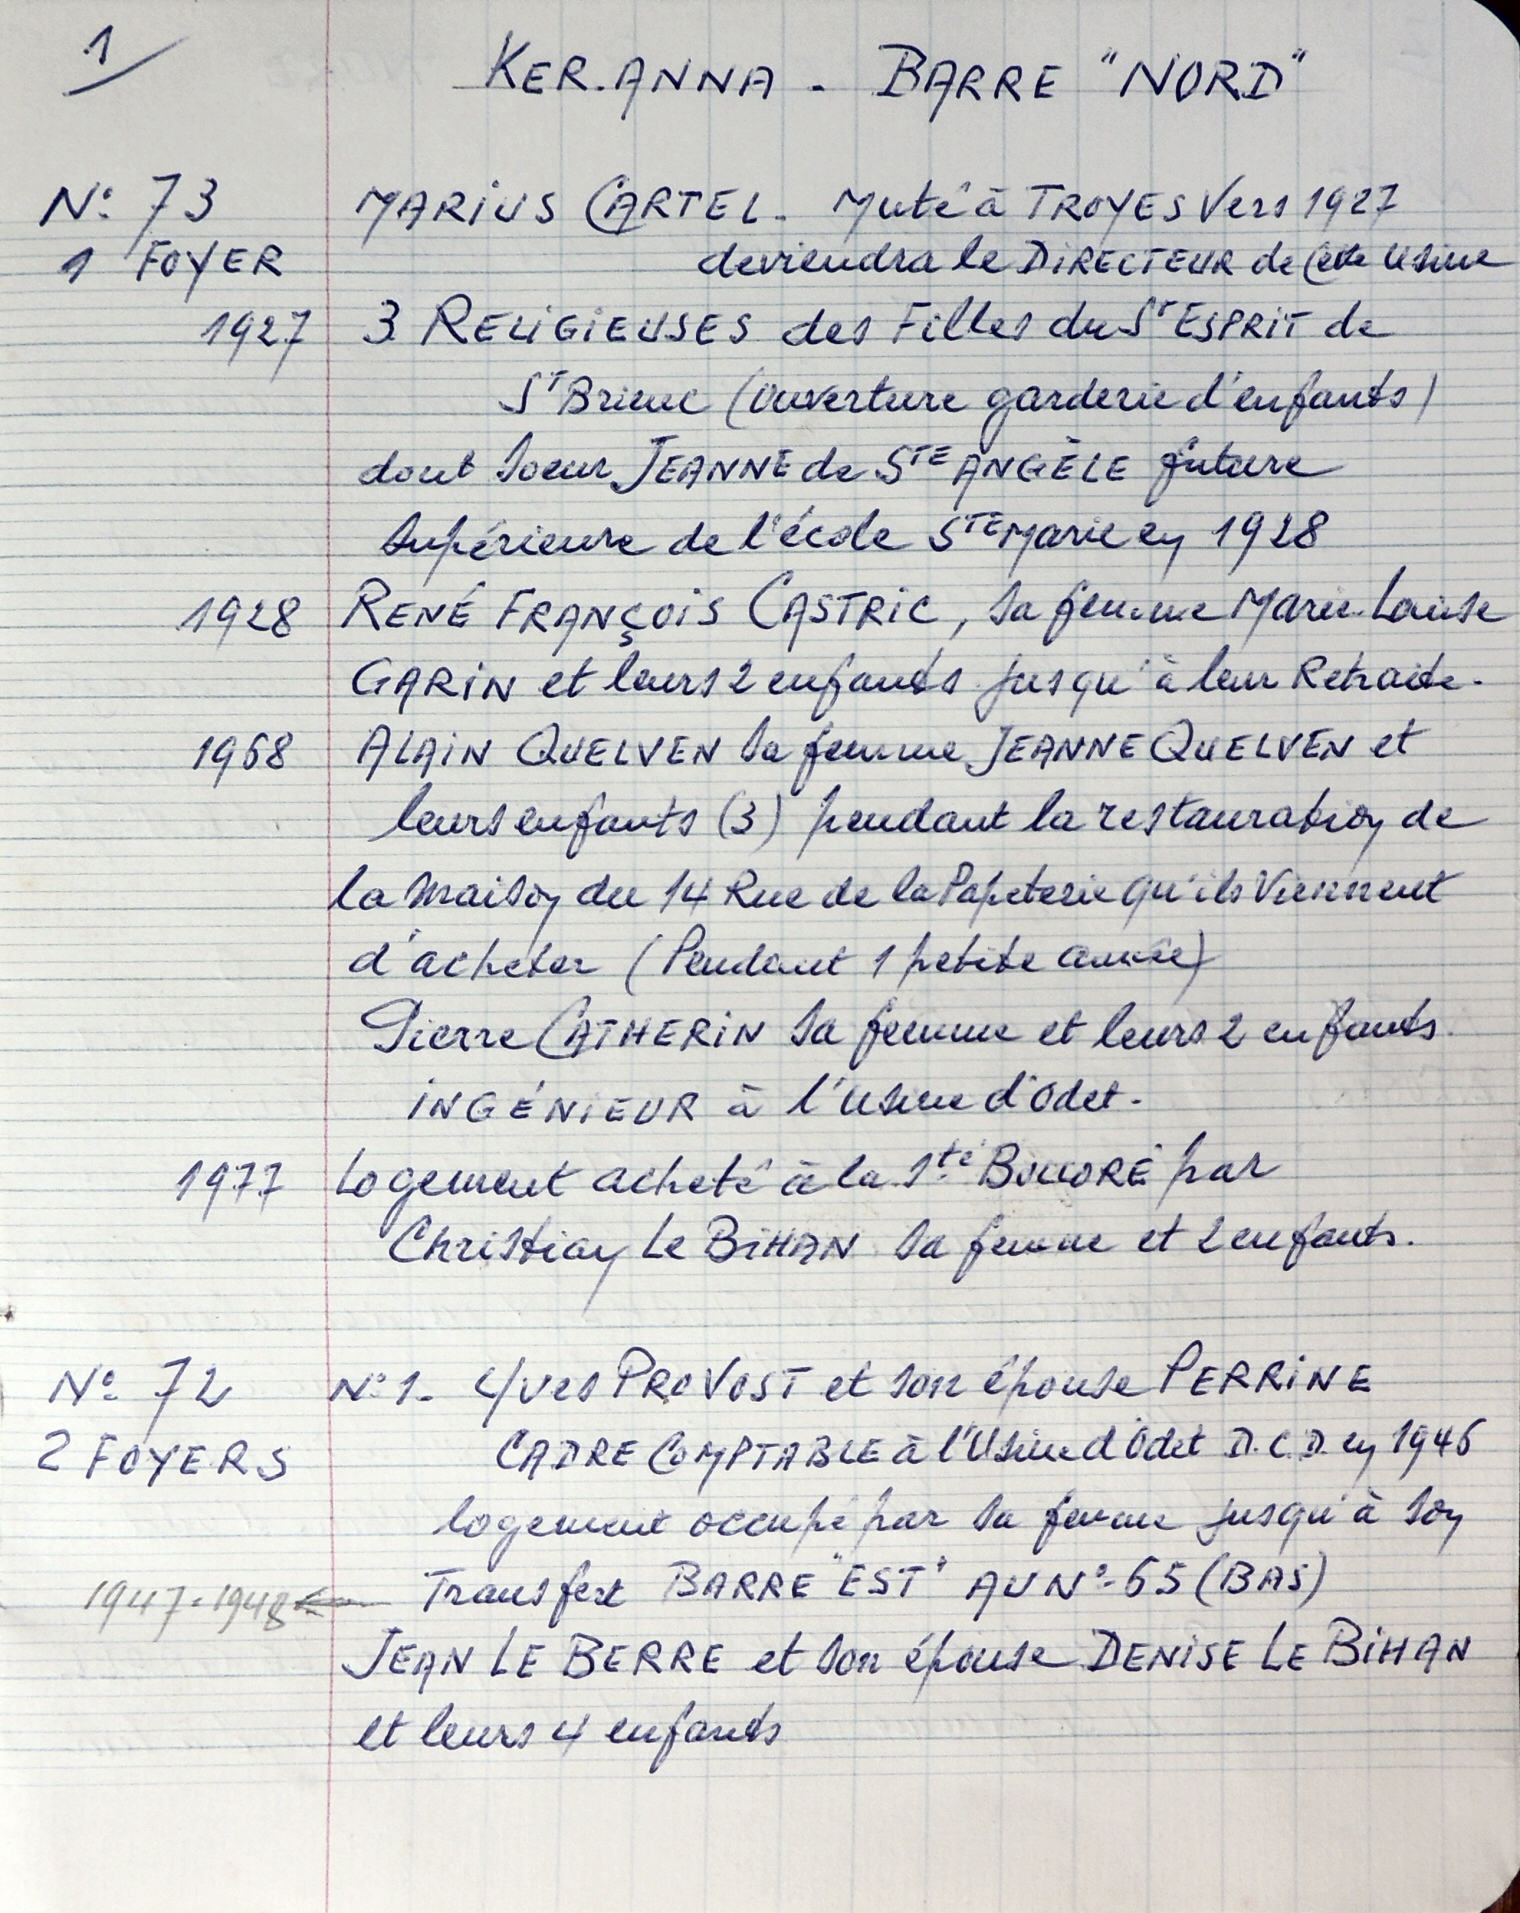 1
KER.ANNA - BARRE "NORD"
N° 73 MARIUS CARTEL. Muté à TROYES Vers 1927
1 FOYER deviendra le DIRECTEUR de Cette Usine
1927 3 RELIGIEUSES des Filles du St ESPRIT de
St Brieuc (Ouverture garderie d'enfants)
dont Soeur JEANNE de STE ANGÈLE future
Supérieure de l'école STE Marie en 1928
1928 RENÉ FRANÇOIS CASTRIC, Sa femme Marie-Louise
GARIN et leurs 2 enfants jusqu'à leur Retraite.
1968 ALAIN QUELVEN Sa femme JEANNE QUELVEN et
leurs enfants (3) pendant la restauration de
la Maison du 14 Rue de la Papeterie qu'ils Viennent
d'acheter (Pendant 1 petite année)
Pierre CATHERIN Sa femme et leurs 2 enfants.
INGÉNIEUR à l'Usine d'Odet.
1977 Logement acheté à la Sté BOLLORÉ par
Christian Le BIHAN Sa femme et 2 enfants.
N° 72 N°1. Yves PROVOST et son épouse PERRINE
2 FOYERS CADRE COMPTABLE à l'Usine d'Odet D.C.D. en 1946
logement occupé par Sa femme jusqu'à Son
1947-1948 ← Transfert BARRE "EST" AU N°-65 (BAS)
JEAN LE BERRE et Son épouse DENISE LE BIHAN
et leurs 4 enfants